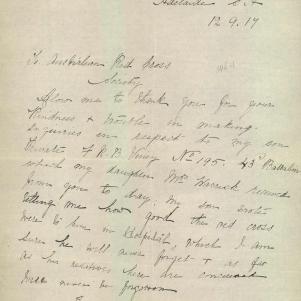 Adelaide S.A
12.9.17
To Australian Red Cross
Society
Allow me to thank you for your
Kindness & trouble in making
Inquiries in respect to my son
Private F R B Viney No 195. 43rd Battalion
which my daughter Mrs Warrick received
from you to day. My son wrote
telling me how good the red cross
were to him in Hospital, which I am
sure he will never forget & as far
as his relatives here are concerned
never be forgotten